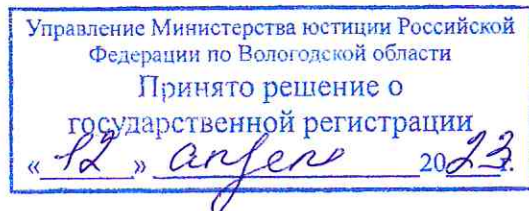 Управление Министерства юстиции Российской
Федерации по Вологодской области
Принято решение о
государственной регистрации
« 12 » апреля 2023 г.